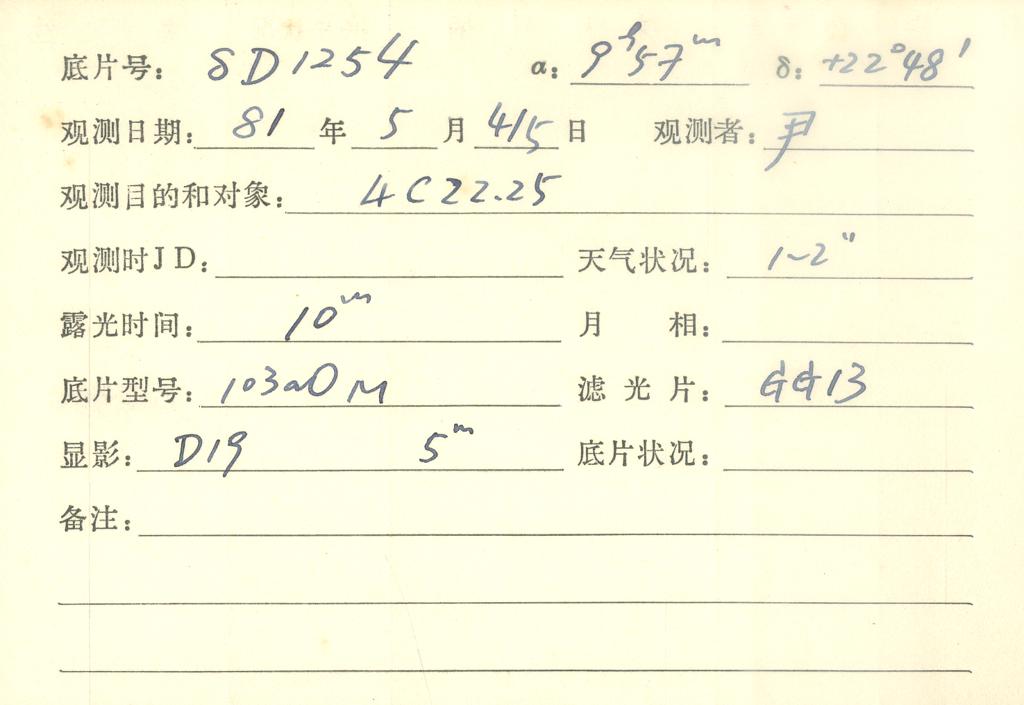 底片号: SD1254 α: 9ʰ57ᵐ δ: +22°48′
观测日期: 81 年 5 月 4/5 日 观测者: 尹
观测目的和对象: 4C22.25
观测时JD: 天气状况: 1~2″
露光时间: 10ᵐ 月 相:
底片型号: 103aO M 滤光片: GG13
显影: D19 5ᵐ 底片状况:
备注: